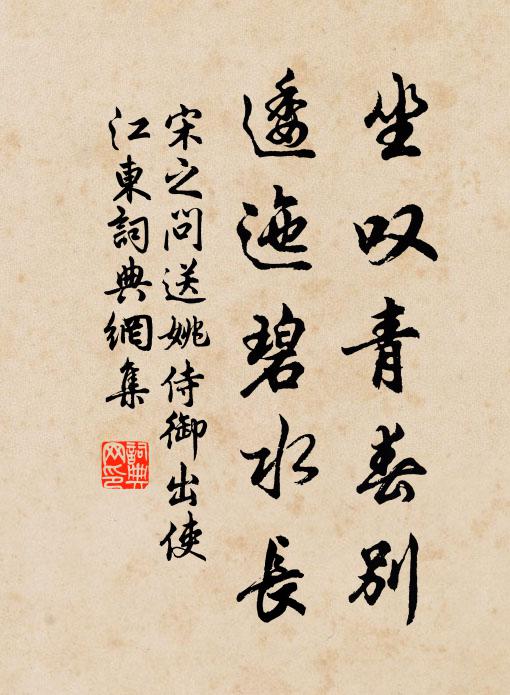 坐叹青春别
逶迤碧水長
宋之问送姚侍御出使
江東詞典網集
詞典
网印